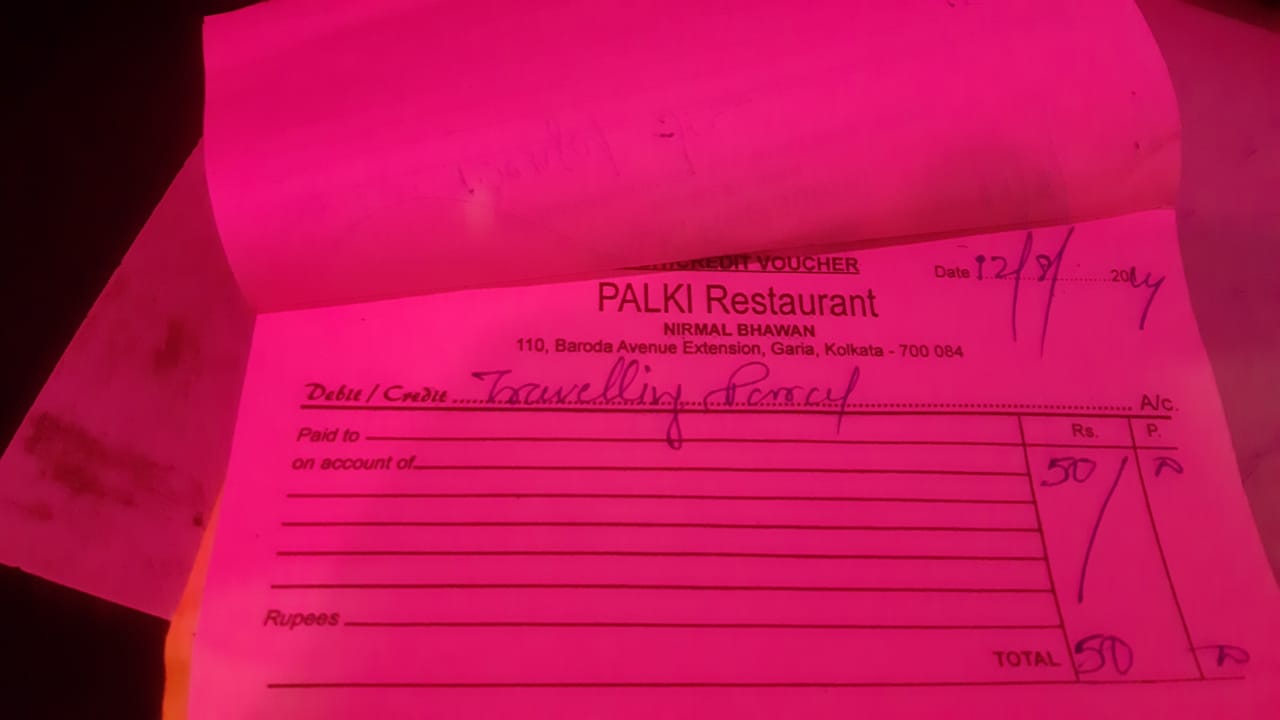 CREDIT VOUCHER
Date 12/8/ 20
PALKI Restaurant
NIRMAL BHAWAN
110, Baroda Avenue Extension, Garia, Kolkata - 700 084
Debit / Credit Travelling A/c.
Paid to Rs. P.
on account of 50/
Rupees
TOTAL 50